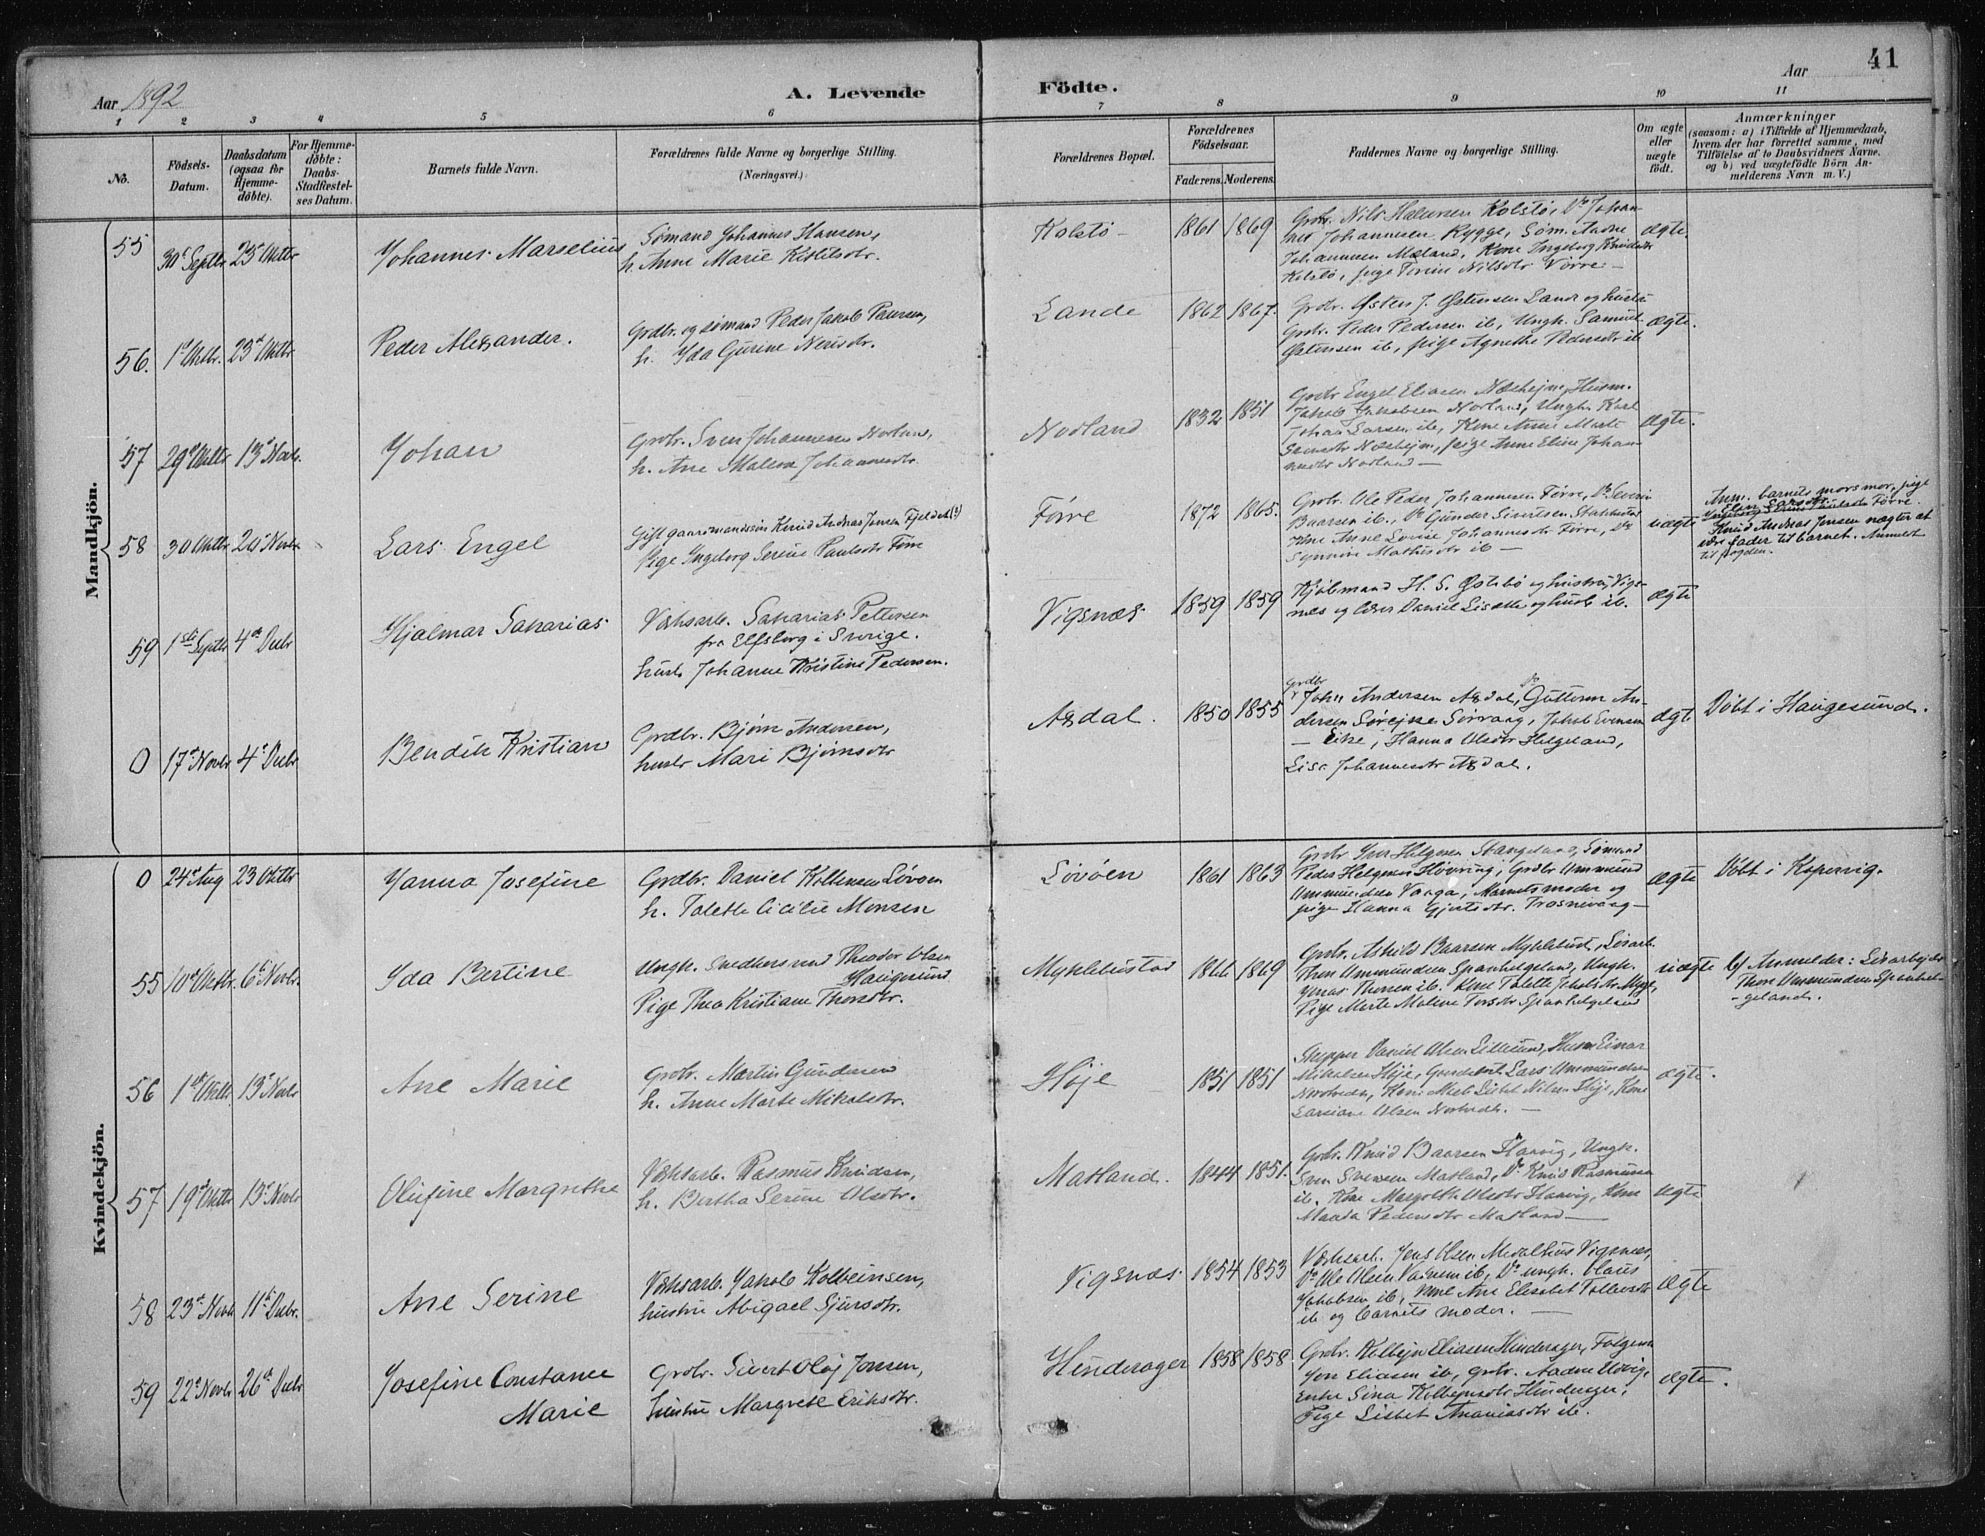 41
Aar 1892
A. Levende
Födte.
Aar
1 2 3 4 5 6 7 8 9 10 11
No.
Födsels-
Datum.
Daabsdatum
(ogsaa for
Hjemme-
døbte).
For Hjemme-
døbte:
Daabs-
Stadfæstel-
ses Datum.
Barnets fulde Navn.
Forældrenes fulde Navne og borgerlige Stilling.
(Næringsvei.)
Forældrenes Bopæl.
Forældrenes
Födselsaar.
Faderens. Moderens.
Faddernes Navne og borgerlige Stilling.
Om ægte
eller
uægte
födt.
Anmærkninger
(saasom: a) i Tilfælde af Hjemmedaab,
hvem der har forrettet samme, med
Tilföielse af to Daabsvidners Navne.
og b) ved uægtefödte Börn An-
melderens Navn m. V.)
Mandkjön.
55 30d Septbr 23d Oktbr Johannes Marselius
Sømand Johannes Hansen,
h. Anne Marie Kittilsdtr.
Kolstø 1861 1869
Grdbr. Nils Halvorsen Kolstø, Do Johan
nes Johannesen Rygge, Søm. Aadne
Johannesen Mæland, Kone Ingeborg Knudsdtr
Kolstø, pige Nilsdtr Vorre
ægte.
56. 1d Oktbr. 23d Oktbr Peder Alexander.
Grdbr. og sømand Peder Jakob Paulsen,
h. Ida Gurine Nerisdtr.
Lande 1862 1867.
Grdbr. Østen J. Østensen Lande og hustru
Grdbr. Peder Pedersen ib, Ungk. Samuel
Østensen ib, pige Agnethe Pedersdtr ib
ægte.
57 29d Oktbr 13d Novbr. Johan
Grdbr. Sven Johannesen Norland,
h. Ane Malene Johannesdtr.
Norland 1832 1851
Grdbr Engel Eliasen Næshejm, Husm.
Jakob Jakobsen Norland, Ungk. Karl
Johan Larsen ib, Kone Anne Marte
Næshejm, pige Anne Eline Johan
nesdtr Norland
ægte.
58 30 Oktbr 20d Novbr Lars Engel
Gift gaardmandssøn Knud Andreas Jensen Fjeldet(?)
Pige Ingeborg Serine Paulsdtr Førre
Førre 1872 1865.
Grdbr. Ole Peder Johannesen Førre, Do Severin
Baarsen ib., Do Gunder Sivertsen
Kone Anne Lovise Johannesdtr Førre, Do
Synnøve Mathisdtr ib
uægte
Anm. barnets mormor, pige
Førre.
Knud Andreas Jensen nægter at
være fader til barnet. Anmeldt
til fogden.
59 1ste Septbr 4de Decbr Hjalmar Sakarias
Værksarb. Sakarias Pettersen
fra Elfsborg i Sverige.
hustr. Johanne Kristine Pedersen.
Vigsnæs 1859 1859
Kjøbmand H. S. Østebö og hustru, Vigs-
nes og Daniel og hustr. ib.
ægte
0 17d Novbr 4de Decbr Bendik Kristian
Grdbr. Bjørn Andersen,
hustr Mari Bjørnsdtr
Axdal. 1850 1855
Grdbr John Andersen Axdal, Do Guttorm An-
dersen Sørvaag, Jakob Evensen
Eike, Hanna Olsdtr Helgeland,
Lisa Johannesdtr Axdal.
ægte
Döbt i Haugesund.
Kvindekjön.
0 24d Aug 23 Oktbr Janna Josefine
Grdbr. Daniel Løvøen
h. Talette Cicilie Monsen
Løvøen 1861 1863
Grdbr Iver Helgesen Stangeland, Sømand
Peder Helgesen Høvring, Grdbr Ommund
Ommundsen Vaaga, Barnets moder og
pige Hanna Gjertsdtr. Trosnevaag
ægte
Döbt i Kopervig.
55 10de Oktbr. 6d Novbr. Ida Bertine
Ungk. Snedkersvend Theodor Olsen
Haugesund
Pige Thea Kristiane Thorsdtr.
Myklebustad 1866 1869
Grdbr. Askild Baarsen Myklebust, Løsarb
Thor Ommundsen Spanhelgeland, Ungk.
Jonas Thorsen ib. Kone Talette
Pige Marte Malene Torsdtr Spanhelgeland
uægte
b) Anmelder: Løsarbejder
Thor Ommundsen Spanhel-
geland.
56 1ste Oktbr 13d Novbr Ane Marie
Grdbr. Martin Gundersen
h. Anne Marte Mikalsdtr.
Høje 1851 1851
Skipper Daniel Olsen Lillesund, Husm Einar
Mikalsen Høje, Lars Ommundsen
Nordvedt, Nilsen Høje, Kone
Olsen Norvedt.
ægte.
57 19d Oktbr 13d Novbr Olufine Margrethe
Værksarb. Rasmus Knudsen,
h. Bertha Serine Olsdtr.
Matland. 1844 1851.
Grdbr. Knud Baarsen Haavig, Ungk.
Sven Svensen Matland, Do Knud Rasmussen
ib. Kone Margrethe Olsdtr Haavig, Kone
Pedersdtr Matland
ægte
58 23d Novbr 11te Decbr. Ane Serine
Værksarb. Jakob Kolbeinsen,
hustru Abigael Sjursdtr.
Vigsnæs 1854 1853
Værksarb. Jens Olsen Vigsnæs,
Do Ole Olsen ib, Do ungk. Olaus
Jakobsen ib, Kone Ane Elisabet
ib og barnets moder.
ægte
59 22d Novbr 26de Decbr Josefine Constance
Marie
Grdbr. Sivert Oluf Jonsen,
hustru Margrete Eriksdtr.
Hinderager 1858 1858.
Grdbr. Kolbejn Eliasen Hinderager,
Jon Eliasen ib, Grdbr. Aadne Udvig,
Enke Sina Kolbejnsdtr Hinderager,
Pige Lisbet Ananiasdtr ib.
ægte.